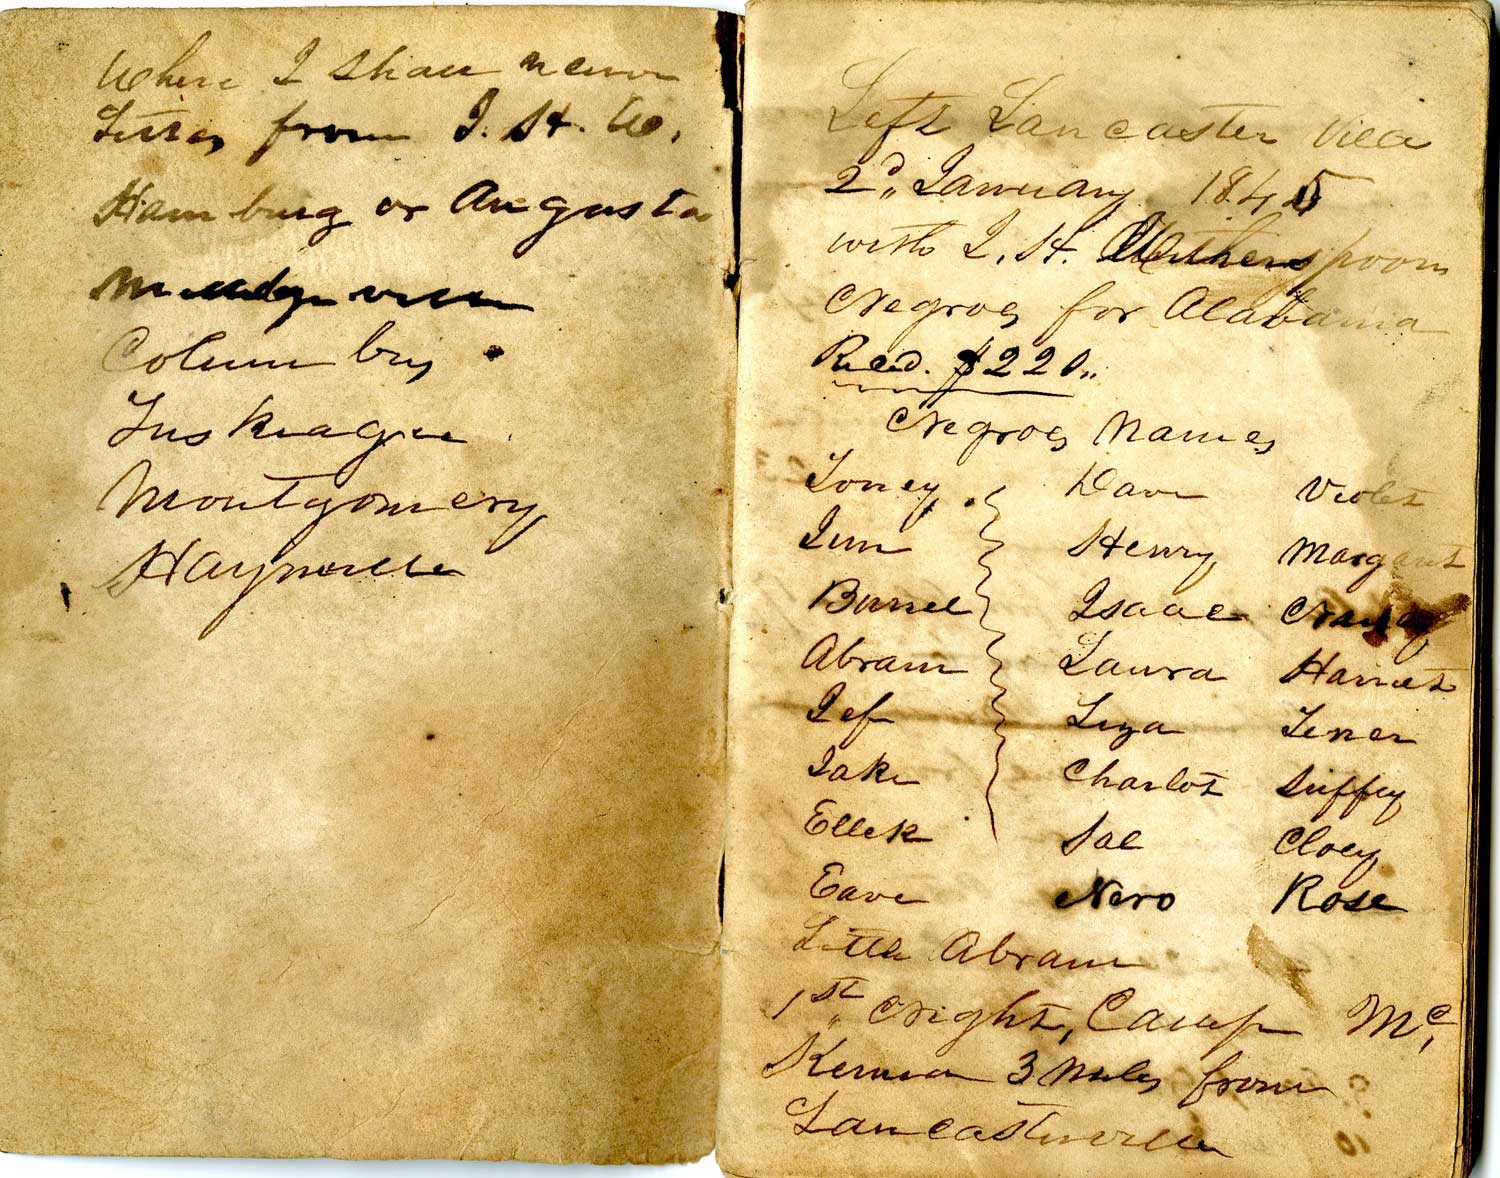 Where I shall receive
Letters from J. H. W.
Hamburg or Augusta
Milledgeville
Columbus
Tuskeagee
Montgomery
Hayneville
Left Lancaster Ville
2d,, January 1845
with J. H. Witherspoon
Negroes for Alabama
Recd. $220,,
Negroes Names
Toney Dave Violet
Jim Henry Margaret
Burrel Isaac
Abram Laura Harriet
Jef Liza Tener
Jake Charlot Suffey
Ellek Sal Cloey
Eave Nero Rose
Little Abram
1st,, Night, Camp Mc,
Kenna 3 Miles from
Lancasterville